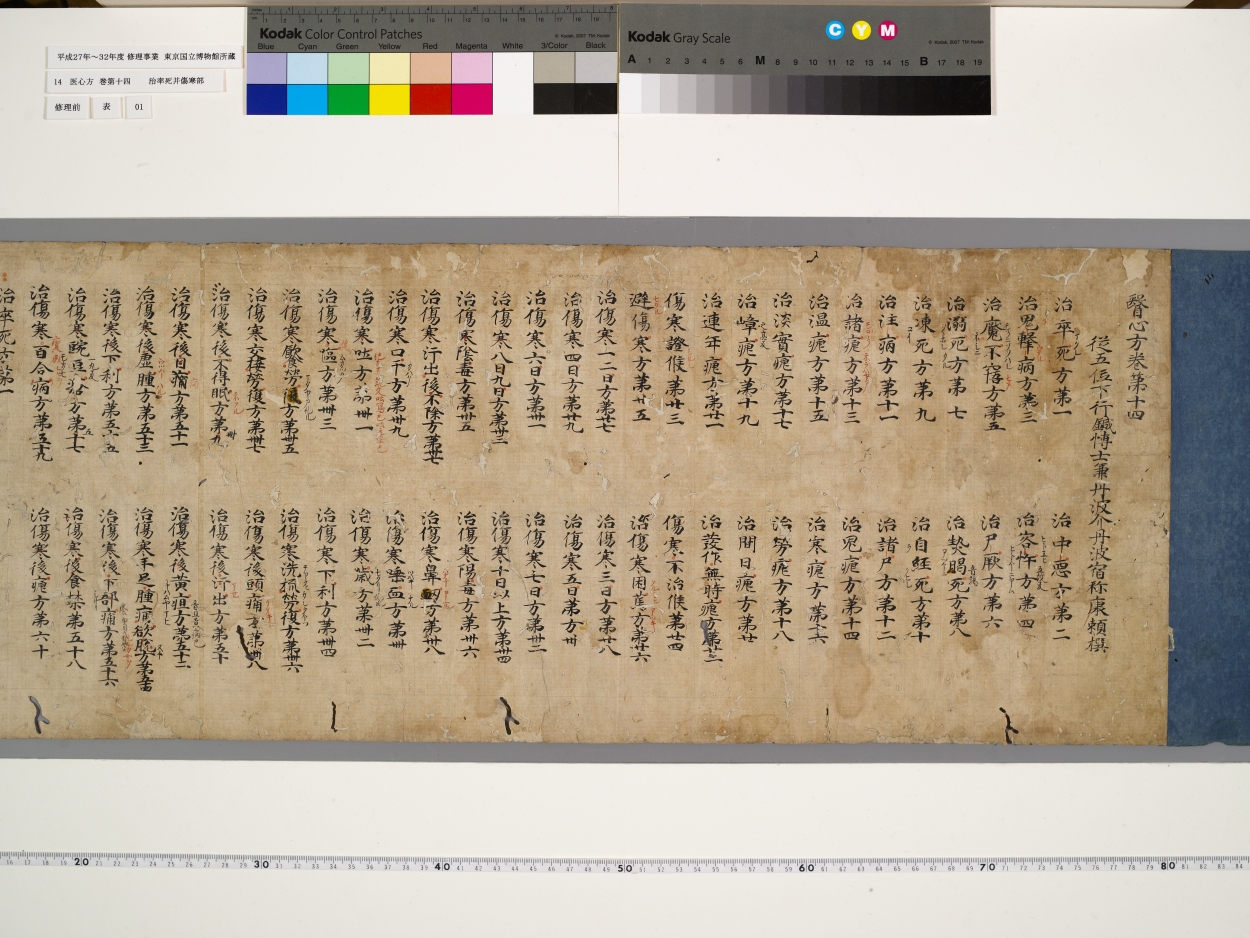 平成27年～32年度 修理事業 東京国立博物館所蔵
14 医心方 巻第十四 治卒死并傷寒部
修理前 表 01
Kodak Color Control Patches
© Kodak, 2007 TM: Kodak
Blue Cyan Green Yellow Red Magenta White 3/Color Black
Kodak Gray Scale
C Y M
© Kodak, 2007 TM: Kodak
A 1 2 3 4 5 6 M 8 9 10 11 12 13 14 15 B 17 18 19
醫心方卷第十四
從五位下行鍼博士兼丹波介丹波宿祢康頼撰
治卒死方第一
治中惡方第二
治鬼擊病方第三
治客忤方第四
治魘不寤方第五
治尸厥方第六
治溺死方第七
治熱暍死方第八
治凍死方第九
治自經死方第十
治注病方第十一
治諸尸方第十二
治諸瘧方第十三
治鬼瘧方第十四
治温瘧方第十五
治寒瘧方第十六
治淡實瘧方第十七
治勞瘧方第十八
治嶂瘧方第十九
治間日瘧方第廿
治連年瘧方第廿一
治發作無時瘧方第廿二
傷寒證候第廿三
傷寒不治候第廿四
避傷寒方第廿五
治傷寒困篤方第廿六
治傷寒一二日方第廿七
治傷寒三日方第廿八
治傷寒四日方第廿九
治傷寒五日方第卅
治傷寒六日方第卅一
治傷寒七日方第卅二
治傷寒八日九日方第卅三
治傷寒十日以上方第卅四
治傷寒陰毒方第卅五
治傷寒陽毒方第卅六
治傷寒汗出後不除方第卅七
治傷寒鼻衄方第卅八
治傷寒口干方第卅九
治傷寒唾血方第卌
治傷寒吐方第卌一
治傷寒噦方第卌二
治傷寒嘔方第卌三
治傷寒下利方第卌四
治傷寒飲食勞復方第卌五
治傷寒洗梳勞復方第卌六
治傷寒交接勞復方第卌七
治傷寒後頭痛方第卌八
治傷寒後不得眠方第卌九
治傷寒後汗出方第五十
治傷寒後目病方第五十一
治傷寒後黃疸方第五十二
治傷寒後虛腫方第五十三
治傷寒手足腫痛欲脫方第五十四
治傷寒後下利方第五十五
治傷寒後下部痛方第五十六
治傷寒豌豆瘡方第五十七
治傷寒後食禁第五十八
治傷寒百合病方第五十九
治傷寒後瘧方第六十
治卒死方第一
20 30 40 50 60 70 80